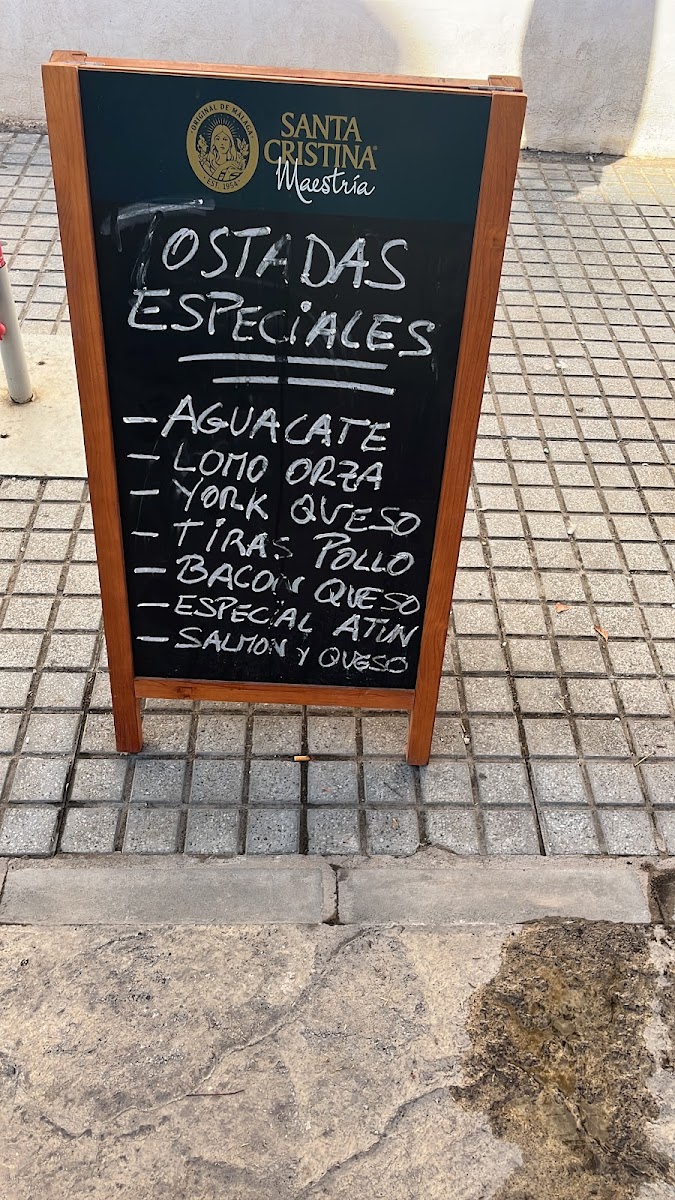 ORIGINAL DE MALAGA
EST. 1954
SANTA
CRISTINA®
Maestría
TOSTADAS
ESPECIALES
- AGUACATE
- LOMO ORZA
- YORK QUESO
- TIRAS POLLO
- BACON QUESO
- ESPECIAL ATUN
- SALMON Y QUESO